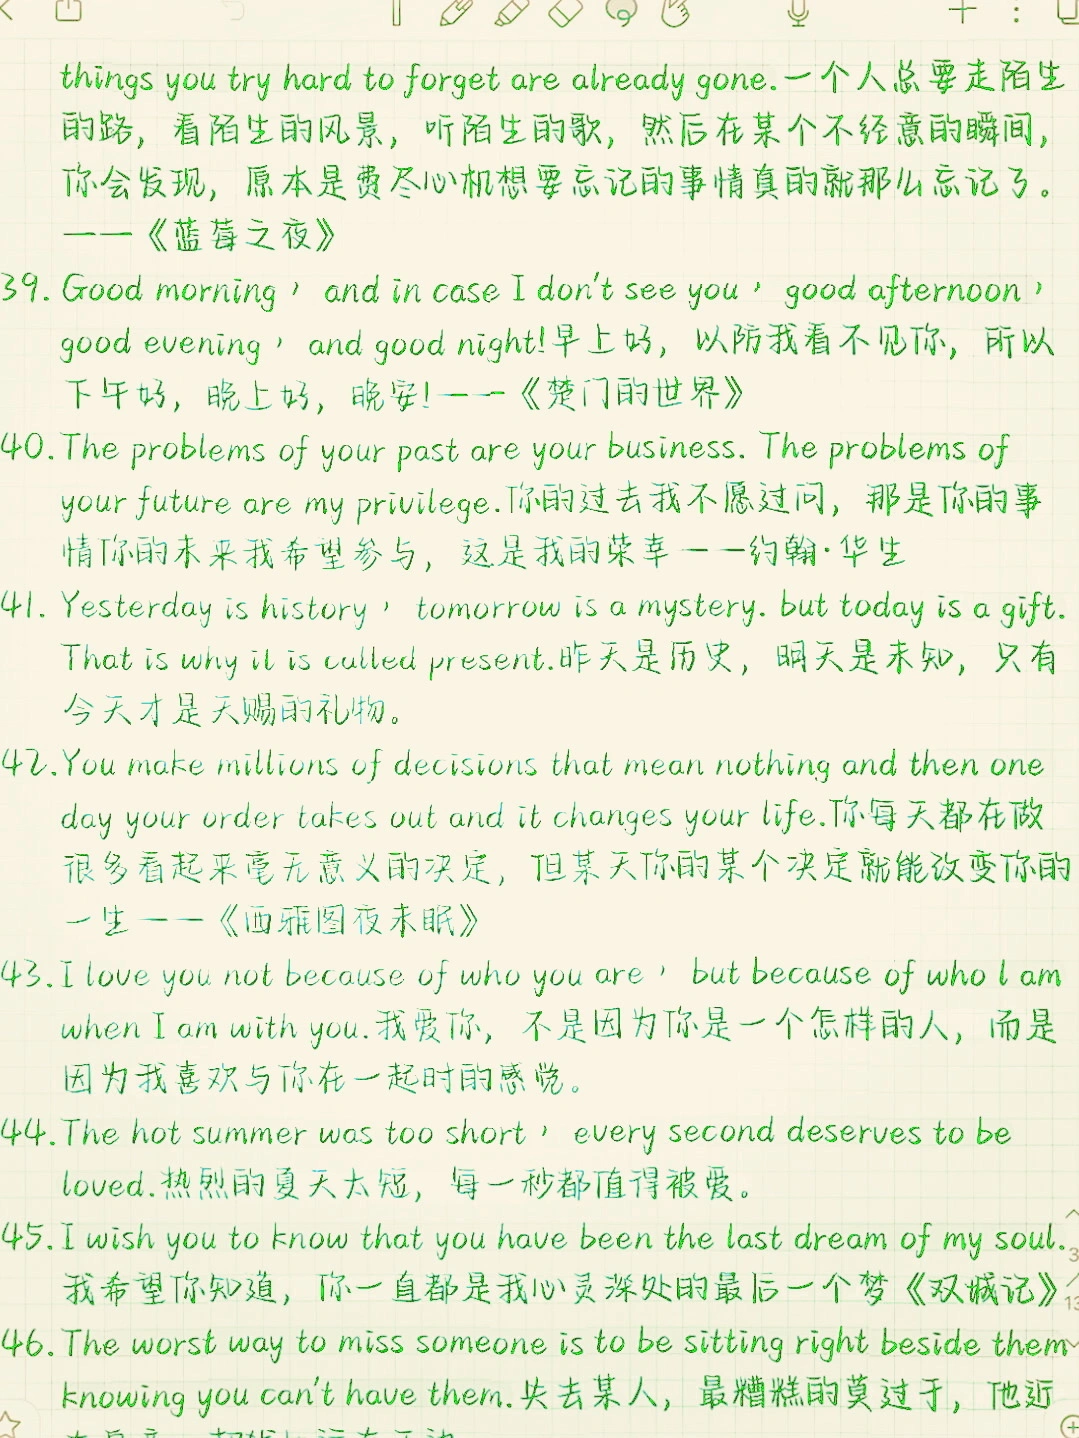 things you try hard to forget are already gone.一个人总要走陌生
的路，看陌生的风景，听陌生的歌，然后在某个不经意的瞬间，
你会发现，原本是费尽心机想要忘记的事情真的就那么忘记了。
——《蓝莓之夜》
39. Good morning，and in case I don't see you，good afternoon，
good evening，and good night!早上好，以防我看不见你，所以
下午好，晚上好，晚安!——《楚门的世界》
40. The problems of your past are your business. The problems of
your future are my privilege.你的过去我不愿过问，那是你的事
情你的未来我希望参与，这是我的荣幸——约翰·华生
41. Yesterday is history，tomorrow is a mystery. but today is a gift.
That is why it is called present.昨天是历史，明天是未知，只有
今天才是天赐的礼物。
42. You make millions of decisions that mean nothing and then one
day your order takes out and it changes your life.你每天都在做
很多看起来毫无意义的决定，但某天你的某个决定就能改变你的
一生——《西雅图夜未眠》
43. I love you not because of who you are，but because of who l am
when I am with you.我爱你，不是因为你是一个怎样的人，而是
因为我喜欢与你在一起时的感觉。
44. The hot summer was too short，every second deserves to be
loved.热烈的夏天太短，每一秒都值得被爱。
45. I wish you to know that you have been the last dream of my soul.
我希望你知道，你一直都是我心灵深处的最后一个梦《双城记》
46. The worst way to miss someone is to be sitting right beside them
knowing you can't have them.失去某人，最糟糕的莫过于，他近